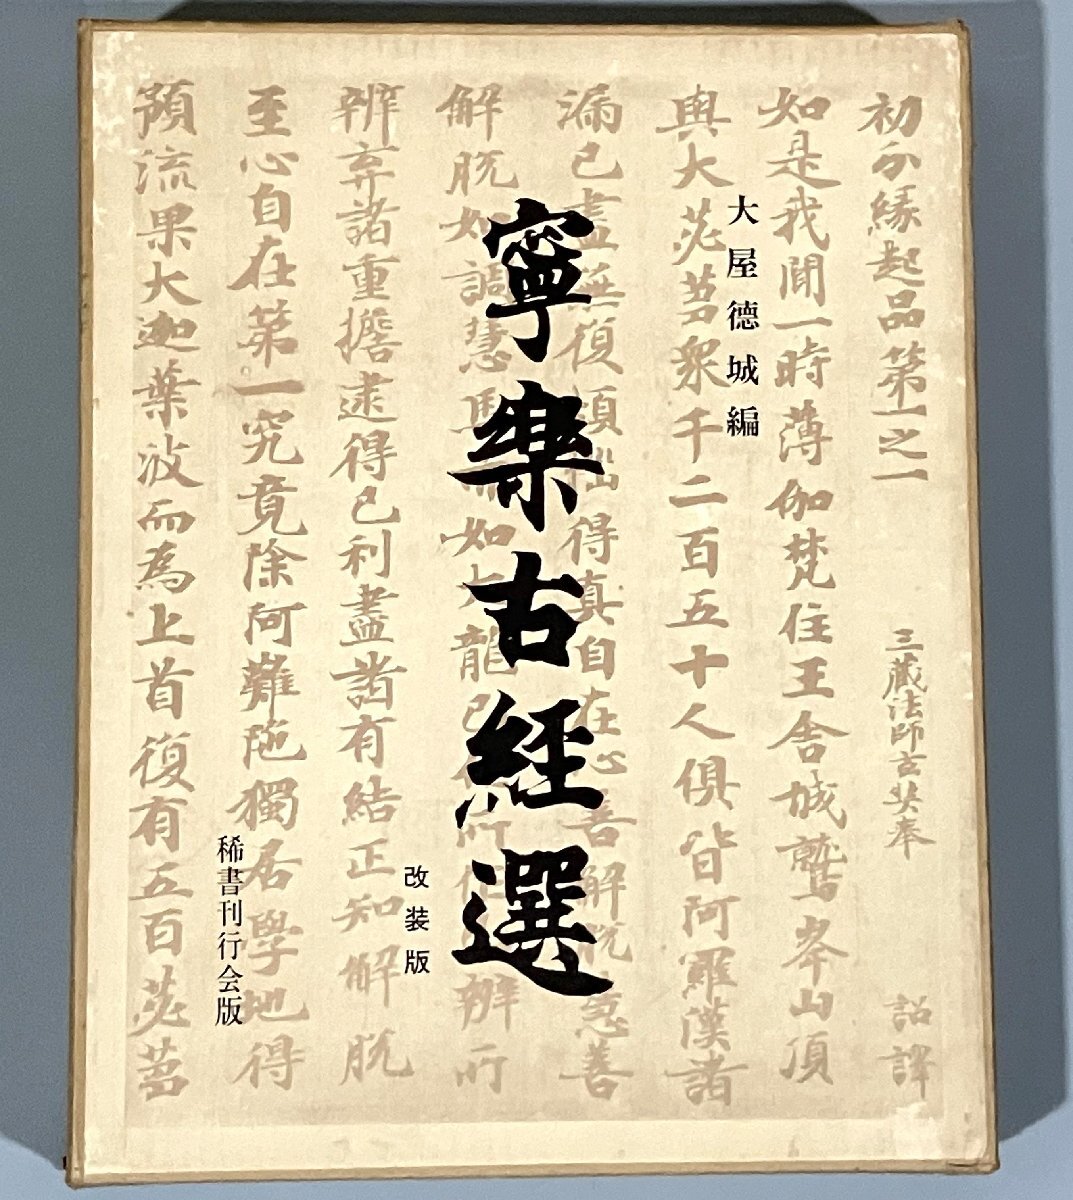 寧樂古經選
大屋德城編
改装版
稀書刊行会版
初分縁起品第一之一 三蔵法師玄奘奉 詔譯
如是我聞一時薄伽梵住王舎城鷲峯山頂
與大苾芻衆千二百五十人俱皆阿羅漢諸
漏已盡無復煩惱得真自在心善解脱慧善
解脱如調慧馬亦如大龍已作所作已辦所
辦弃諸重擔逮得己利盡諸有結正知解脱
至心自在第一究竟除阿難陁獨居學地得
預流果大迦葉波而為上首復有五百苾芻